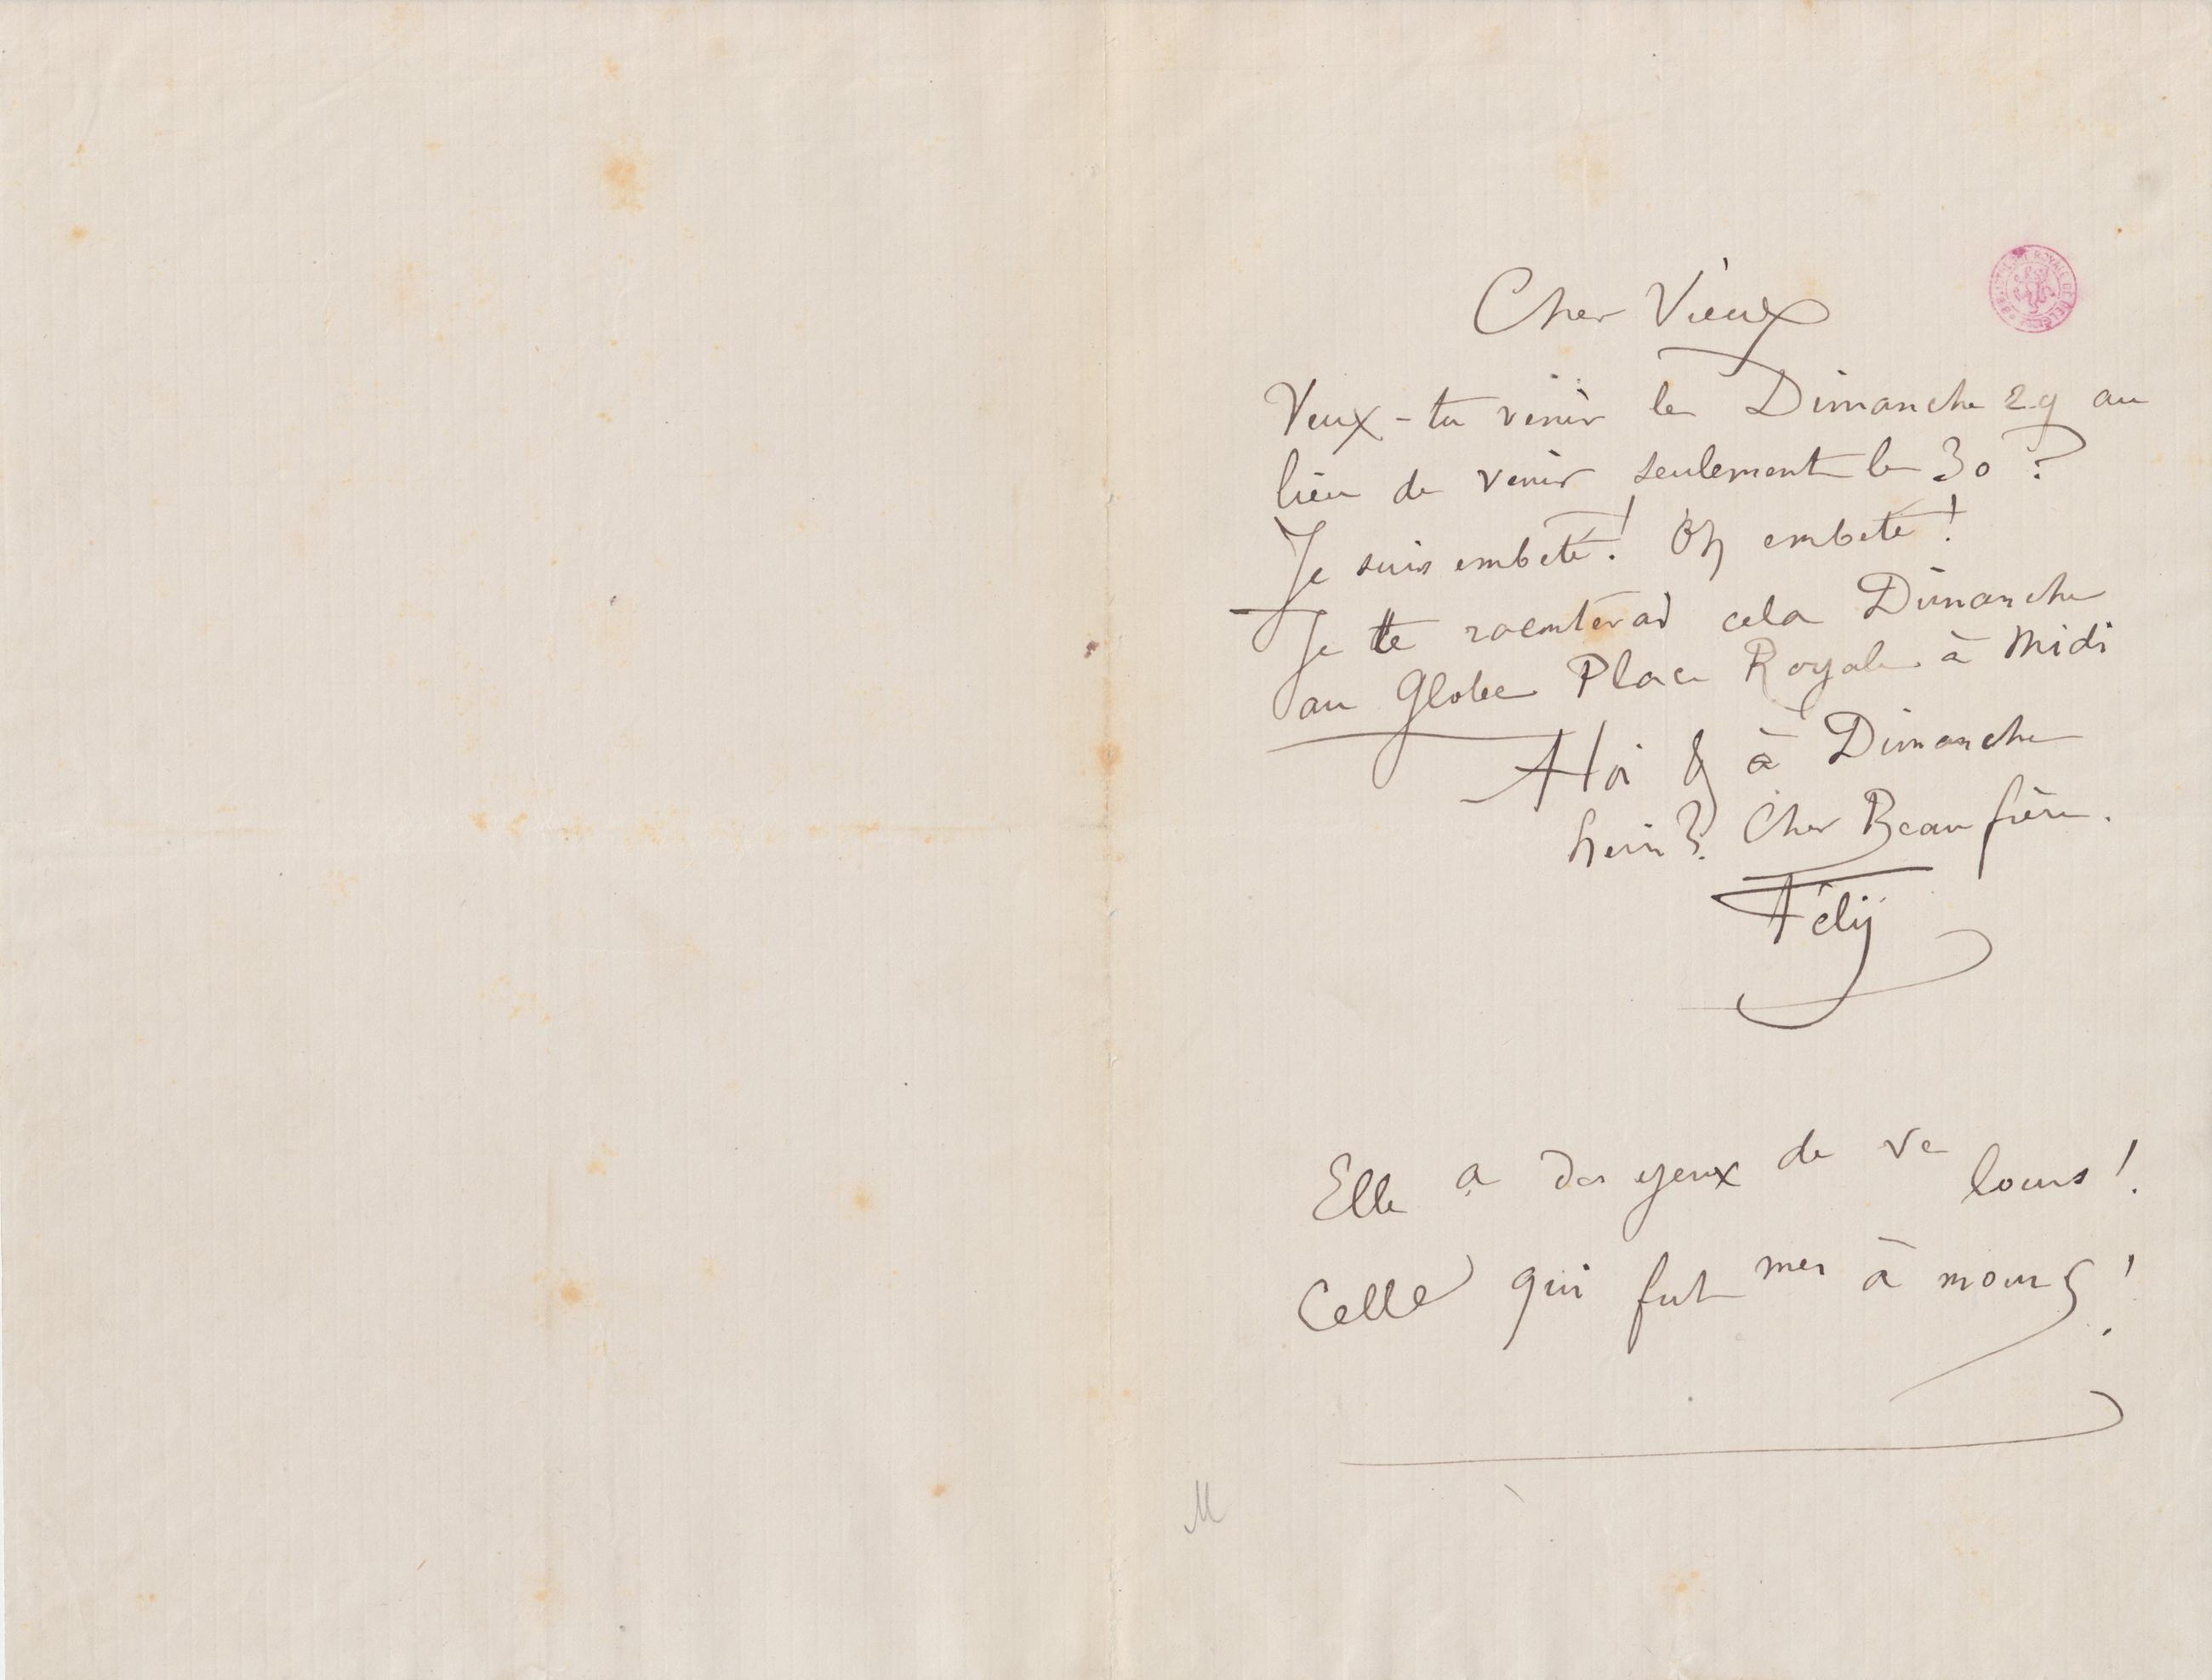 Cher Vieux
Veux-tu venir le Dimanche 29 au
lieu de venir seulement le 30 ?
Je suis embêté ! Oh embêté !
Je te raconterai cela Dimanche
au Globe Place Royale à Midi
à Dimanche
hein ? Cher Beau frère.
Fély
Elle a des yeux de ve lours !
Celle qui fut mes à mours !
M